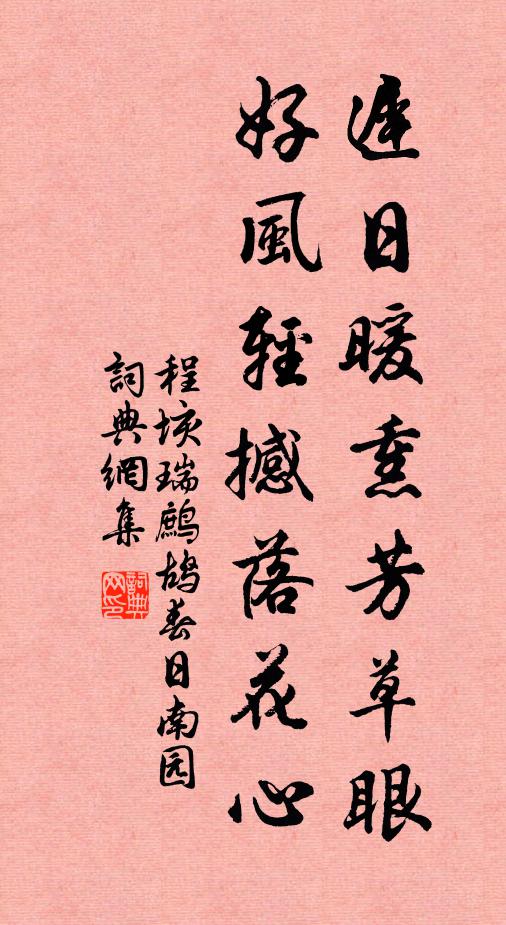 遲日暖熏芳草眼
好風輕撼落花心
程垓瑞鷓鴣春日南园
詞典網集
詞典网印